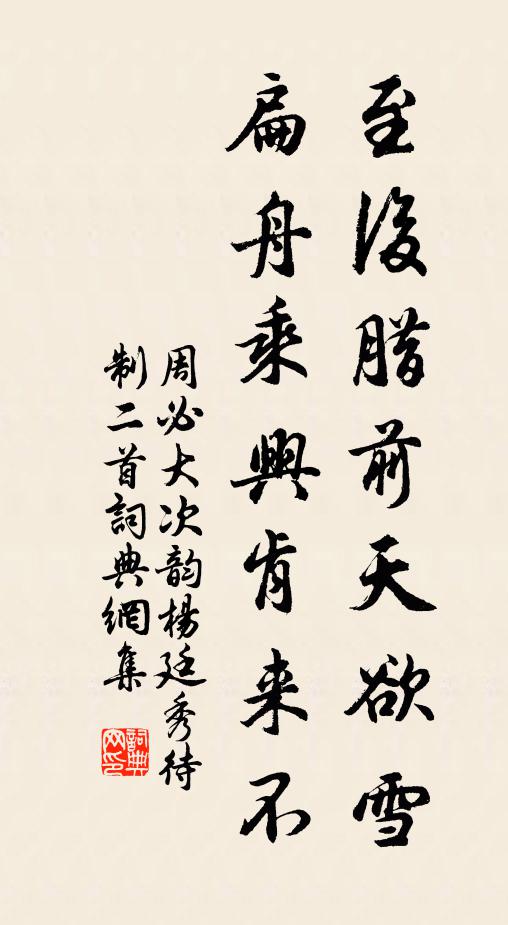 至後腊前天欲雪
扁舟乘興肯来不
周必大次韵楊廷秀待
制二首詞典網集
詞典
网印